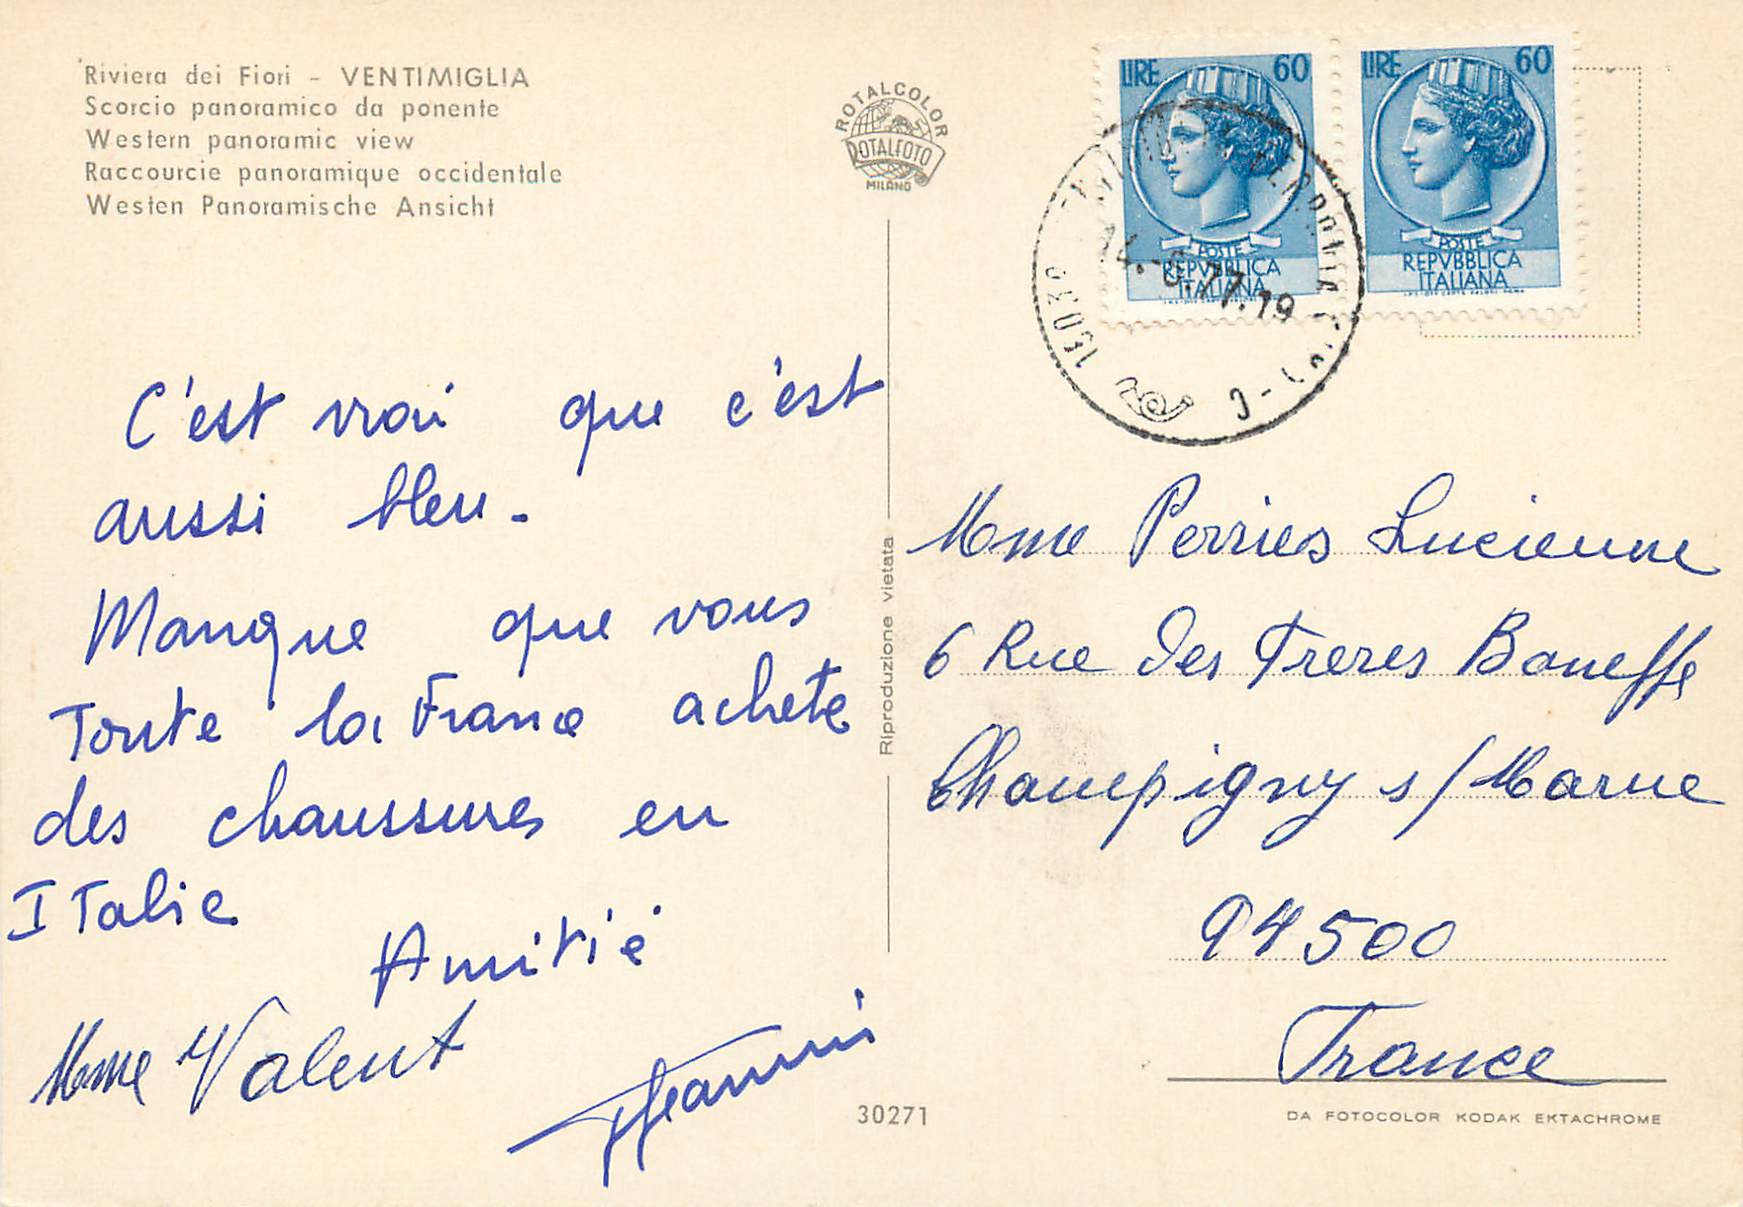 Riviera dei Fiori - VENTIMIGLIA
Scorcio panoramico da ponente
Western panoramic view
Raccourcie panoramique occidentale
Westen Panoramische Ansicht
ROTALCOLOR
ROTALFOTO
MILANO
LIRE 60
POSTE
REPVBBLICA
ITALIANA
LIRE 60
POSTE
REPVBBLICA
ITALIANA
77.19
C'est vrai que c'est
aussi bleu.
Manque que vous
Toute la France achete
des chaussures en
ITalie
Amitié
Mme Valent
Riproduzione vietata
Mme Perries Lucienne
6 Rue des Freres Boneffe
Champigny s/Marne
94500
France
30271
DA FOTOCOLOR KODAK EKTACHROME